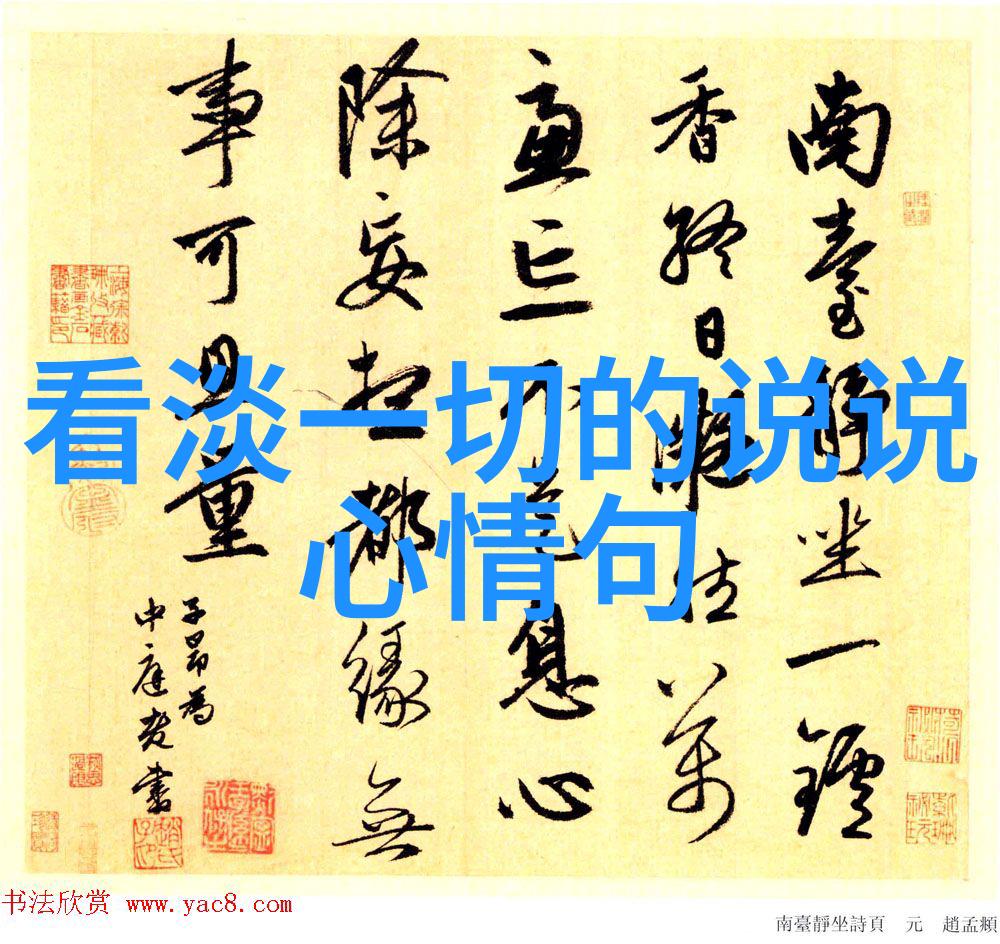 看淡一切的说说
心情句
南臺靜坐一鑪
香終日凝 萬
慮亡不是息心
除妄想都緣無
事可思量
子昂為
中庭老書
书法欣赏 www.yac8.com
南臺靜坐詩頁 元 趙孟頫